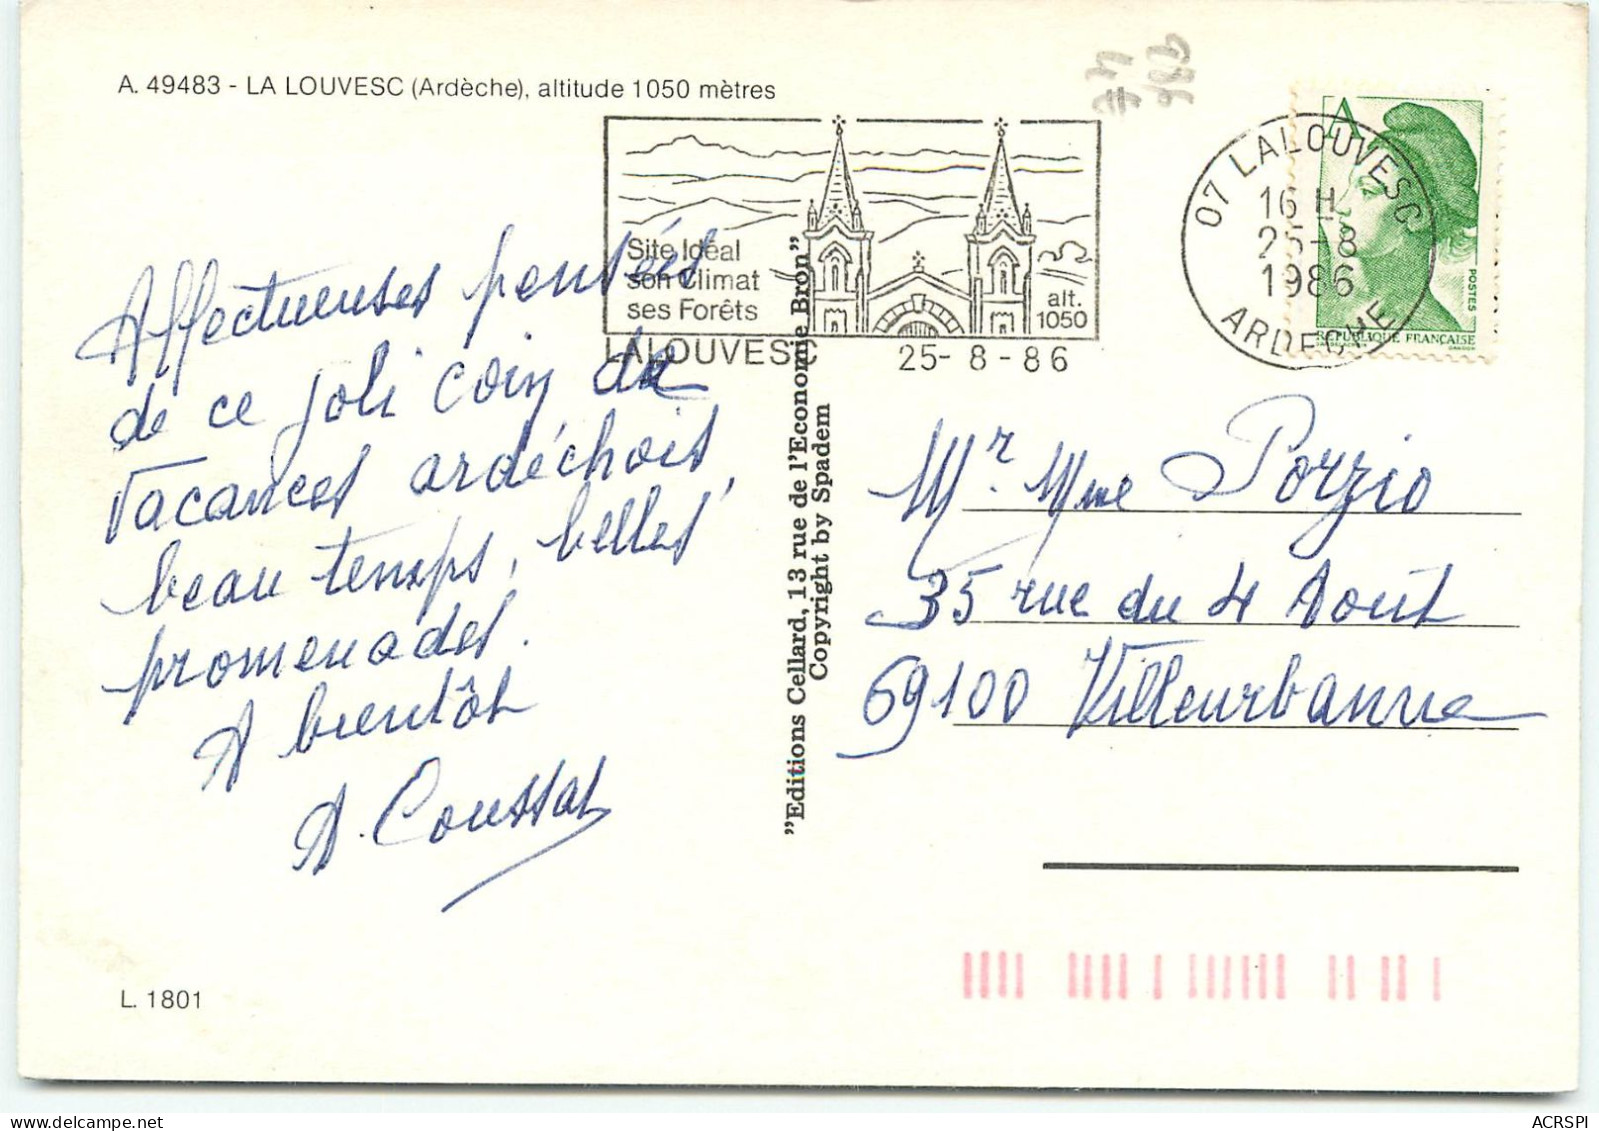 A. 49483 - LA LOUVESC (Ardèche), altitude 1050 mètres
Site Idéal
son Climat
ses Forêts
alt.
1050
LALOUVESC 25-8-86
07 LALOUVESC
16 H
25-8
1986
ARDECHE
A
POSTES
REPUBLIQUE FRANÇAISE
Affectueuses pensées
de ce joli coin de
vacances ardéchois,
beau temps, belles
promenades.
A bientôt
A. Coussat
"Editions Cellard, 13 rue de l'Economie Bron"
Copyright by Spadem
Mr. Mme Porzio
35 rue du 4 Août
69100 Villeurbanne
L. 1801
ACRSPI